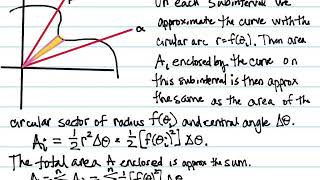 On each subinterval we
approximate the curve with the
cirular arc r=f(θᵢ). Then area
α
Aᵢ enclosed by the curve on
this subinterval is then approx
the same as the area of the
circular sector of radius f(θᵢ) and central angle Δθ.
Aᵢ = ½ r² Δθ = ½ [f(θᵢ)²] Δθ.
The total area A enclosed is approx the sum.